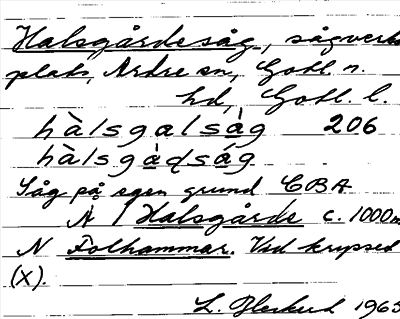 Halsgårdesåg, sågverks
plats, Ardre sn, Gotl. n.
hd, Gotl. l.
hàlsgalsàg 206
hàlsgàɖság
Såg på egen grund CBA
N / Halsgårde c. 1000m
N Folhammar. Vid krypsed
(x).
L. 1963